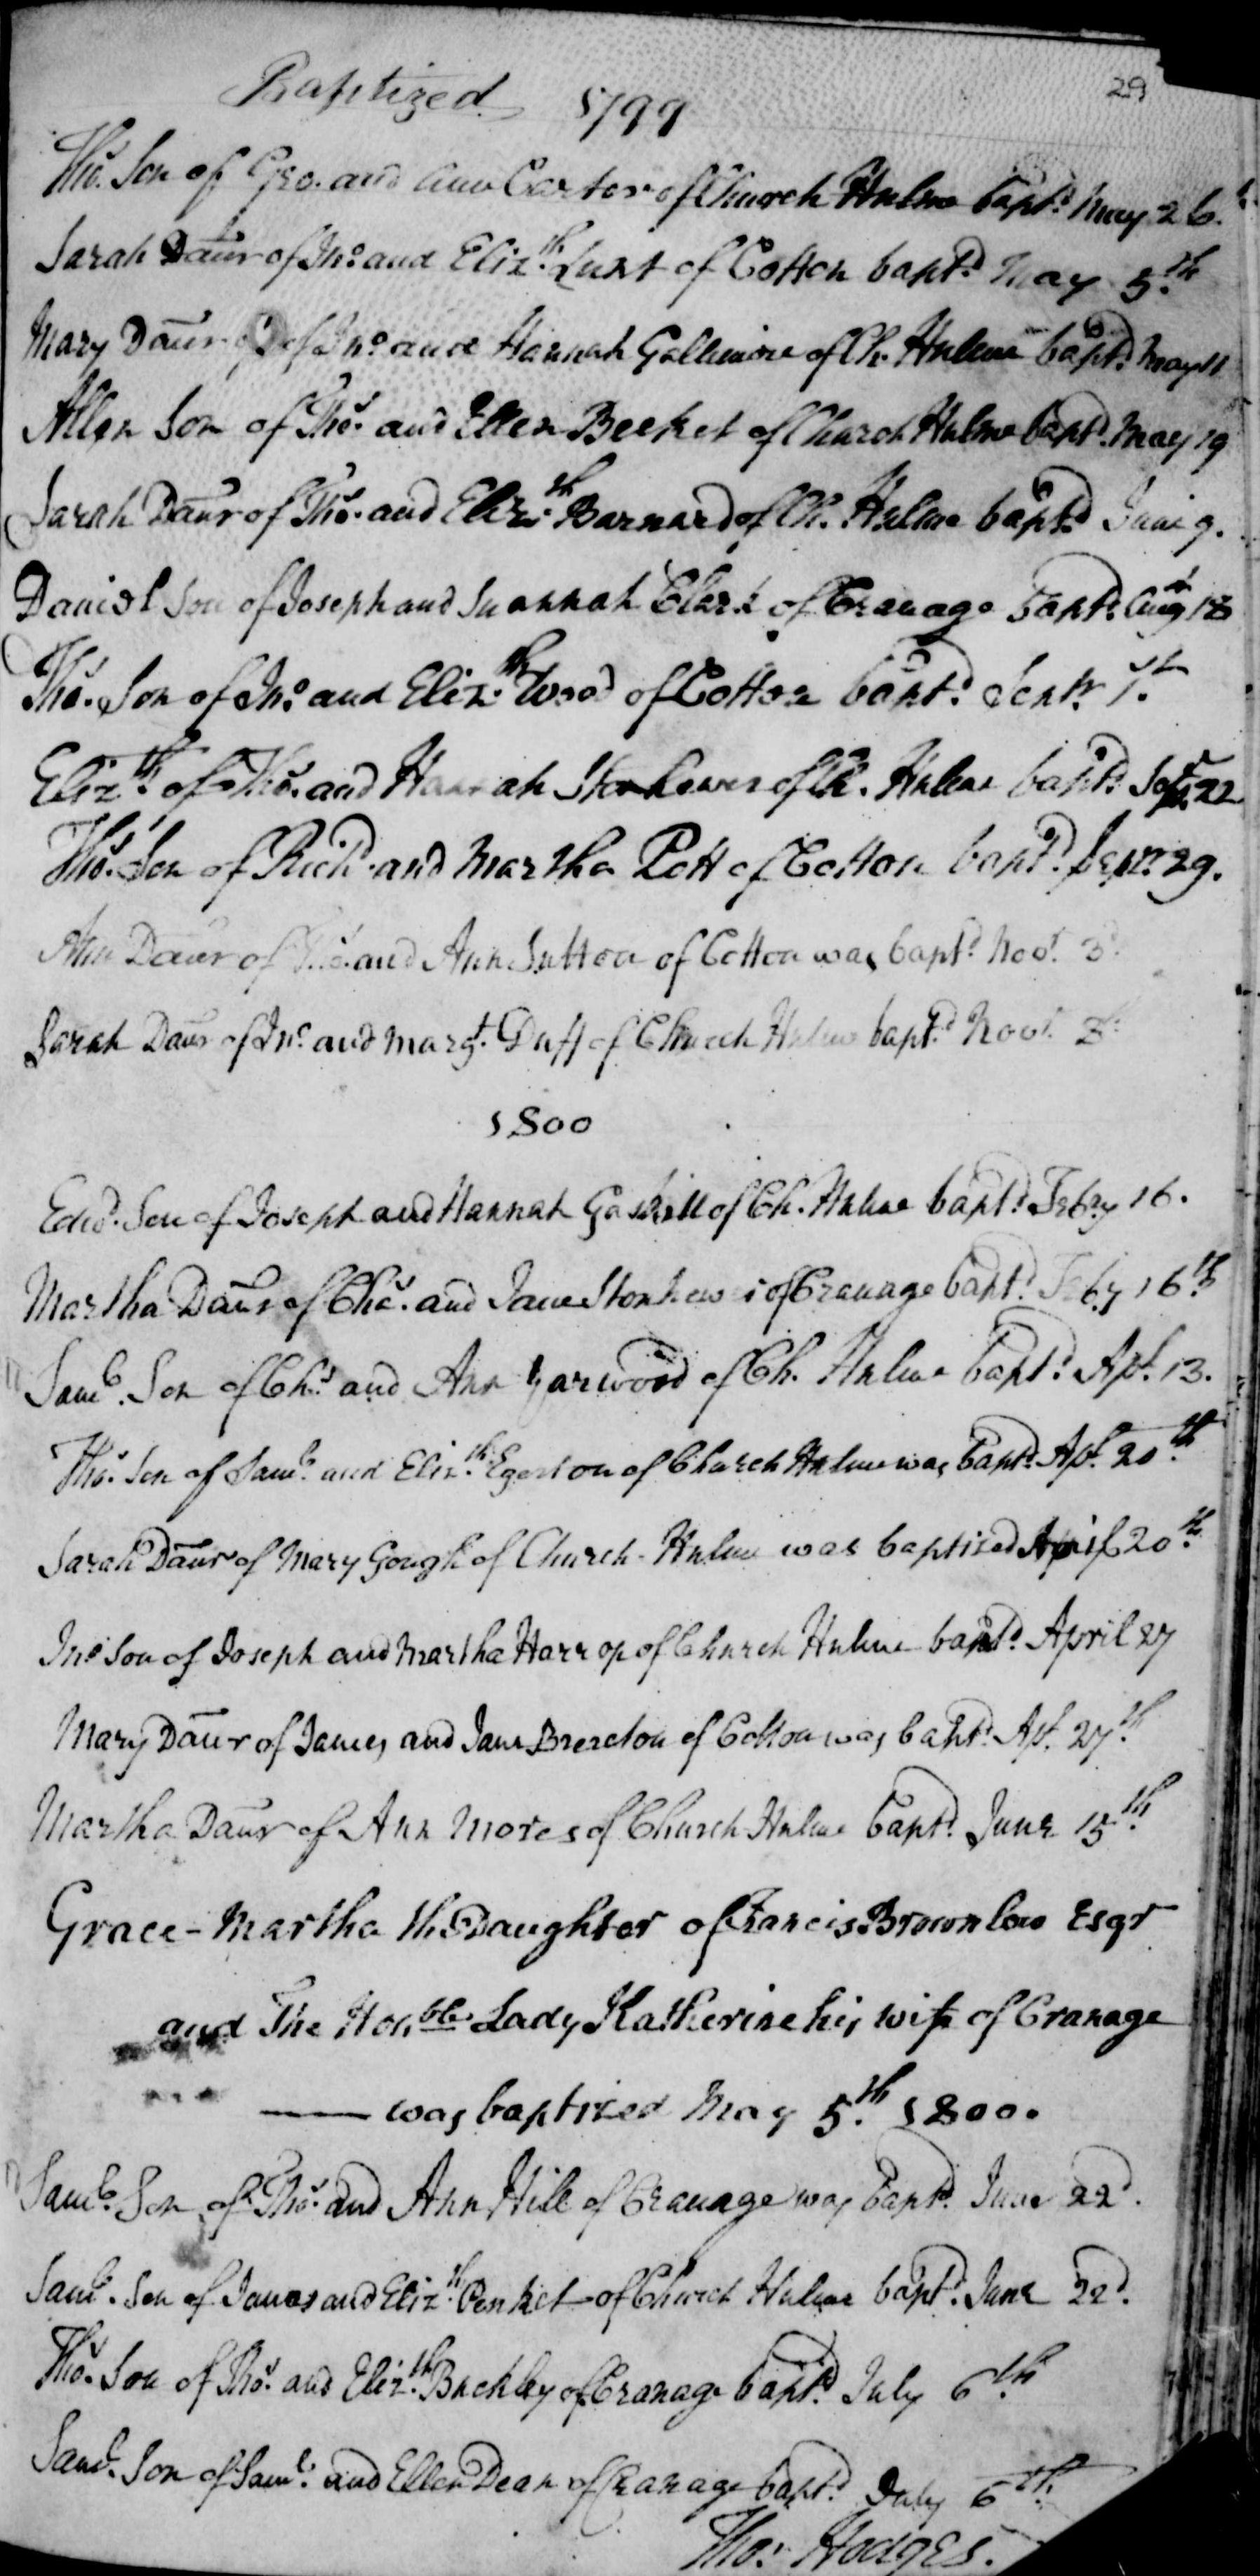 29
Baptized 1799
Thos. Son of Geo. and Ann Carter of Church Hulme bapt.d May 26.
Sarah Daur of Jno. and Eliz.th Lunt of Cotton bapt.d May 5.th
Mary Daur of Jno. and Hannah Gallimore of Ch. Hulme bapt.d May 11
Allen Son of Thos. and Ellen Becket of Church Hulme bapt.d May 19
Sarah Daur of Thos. and Eliz.th Barnard of Ch. Hulme bapt.d June 9.
Daniel Son of Joseph and Susannah Clark of Cranage bapt.d Augt 18
Thos. Son of Jno. and Eliz.th Wood of Cotton bapt.d Septr. 1st
Eliz.th of Thos. and Hannah Stonhewer of Ch. Hulme bapt.d Sepr. 22
Thos. Son of Richd. and Martha Pott of Cotton bapt.d Sepr. 29.
Ann Daur of Thos. and Ann Sutton of Cotton was bapt.d Novr. 3d
Sarah Daur of Jno. and Margt. Duff of Church Hulme bapt.d Novr. 3d
1800
Edwd. Son of Joseph and Hannah Gaskell of Ch. Hulme bapt.d Febry 16.
Martha Daur of Chas. and Jane Stonhewer of Cranage bapt.d Feby 16th
Saml. Son of Chs. and Ann Yarwood of Ch. Hulme bapt.d Apl. 13.
Thos. Son of Saml. and Eliz.th Egerton of Church Hulme was bapt.d Apl. 20th
Sarah Daur of Mary Gough of Church-Hulme was baptized April 20th
Jno. Son of Joseph and Martha Harrop of Church Hulme bapt.d April 27
Mary Daur of James and Jane Brereton of Cotton was bapt.d Apl. 27th
Martha Daur of Ann Mores of Church Hulme bapt.d June 15th
Grace-Martha the Daughter of Francis Brownlow Esqr
and The Honble Lady Katherine his wife of Cranage
—— was baptized May 5th. 1800.
Saml. Son of Thos. and Ann Hill of Cranage was bapt.d June 22d.
Saml. Son of James and Eliz.th Penket of Church Hulme bapt.d June 22d.
Thos. Son of Thos. and Eliz.th Buckley of Cranage bapt.d July 6th
Saml. Son of Saml. and Ellen Dean of Cranage bapt.d July 6th
Tho: Hodges.